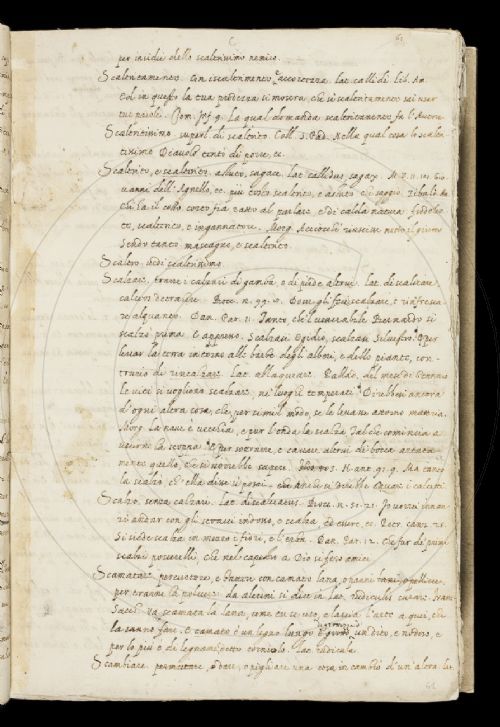 C 61
per insidie dello scaltrissimo nemico.
Scaltritamente. Con iscaltrimento, accortezza. lat. callidè. Lib. Am.
Col. in questo la tua prodezza si mostra, che sì scaltritamente sai usar
tue parole. Com. Inf. 9. La qual domanda scaltritamente fa l'Autore
Scaltritissimo superl. di scaltrito. Coll. S. Pad. Nella qual cosa lo scaltri-
tissimo Diavolo tentò di
Scaltrito, e scalterito, astuto, sagace. lat. callidus, sagax. M. V. 11. 101. Gio-
vanni dell'Agnello, ec. più tosto scaltrito, e astuto che saggio.
Chi ha il collo corto fia ratto al parlare, e di calda natura, frodolen-
to, scalterito, e ingannatore. Morg.
sendo tanto mascagno, e scalterito.
Scaltro. vedi scaltrissimo.
Scalzare, trarre i calzari di gamba, o di piede altrui. lat. discalceare,
calceos detrahere. Bocc. n. 99. Dove gli fece scalzare, e rinfresca-
re alquanto. Dan. Par. 11. Tanto che'l venerabile Bernardo si
scalzò prima. E appresso. Scalzasi Egidio, scalzasi Silvestro. Per
levar la terra intorno alle barbe degli alberi, e delle piante, con-
trario di rincalzare. lat. ablaqueare. Pallad. del mese di Gennaio
le viti si vogliono scalzare, ne' luoghi temperati. Direbbesi ancora
d'ogni altra cosa, che per simil modo, se le levasse attorno materia.
Morg. La nave è vecchia, e per l'onda la scalza Talchè comincia a
E per sottrarre, e cavare altrui di bocca astuta-
mente quello, che si vorrebbe sapere. N. ant. 91. 9. Ma tanto
la scalzò ch'ella disse
Scalzo, senza calzari. lat. discalceatus. Bocc. n. 21. 21. Io vorrei innan-
zi andar con gli stracci indosso, e scalza, ed essere, ec. Petr. canz. 21.
Si siede scalza in mezzo i fiori, e l'erba. Dan. Par. 12. Che fur de' primi
scalzi poverelli, che nel capestro a Dio si fero amici
Scamatare, percuotere, e battere con camato lana, o panni
per trarne la polvere. da alcuni si dice in lat. rudiculis Fran.
Sacc. va scamata la lana, come tu se' uso, e lascia l'arte a quei, che
la sanno fare. E camato è un legno lungo un dito, e nodoso, e
per lo più è di legname detto corniolo. lat. rudicula.
Scambiare, permutare, o dare, o pigliare una cosa in cambio d'un'altra. lat.
61